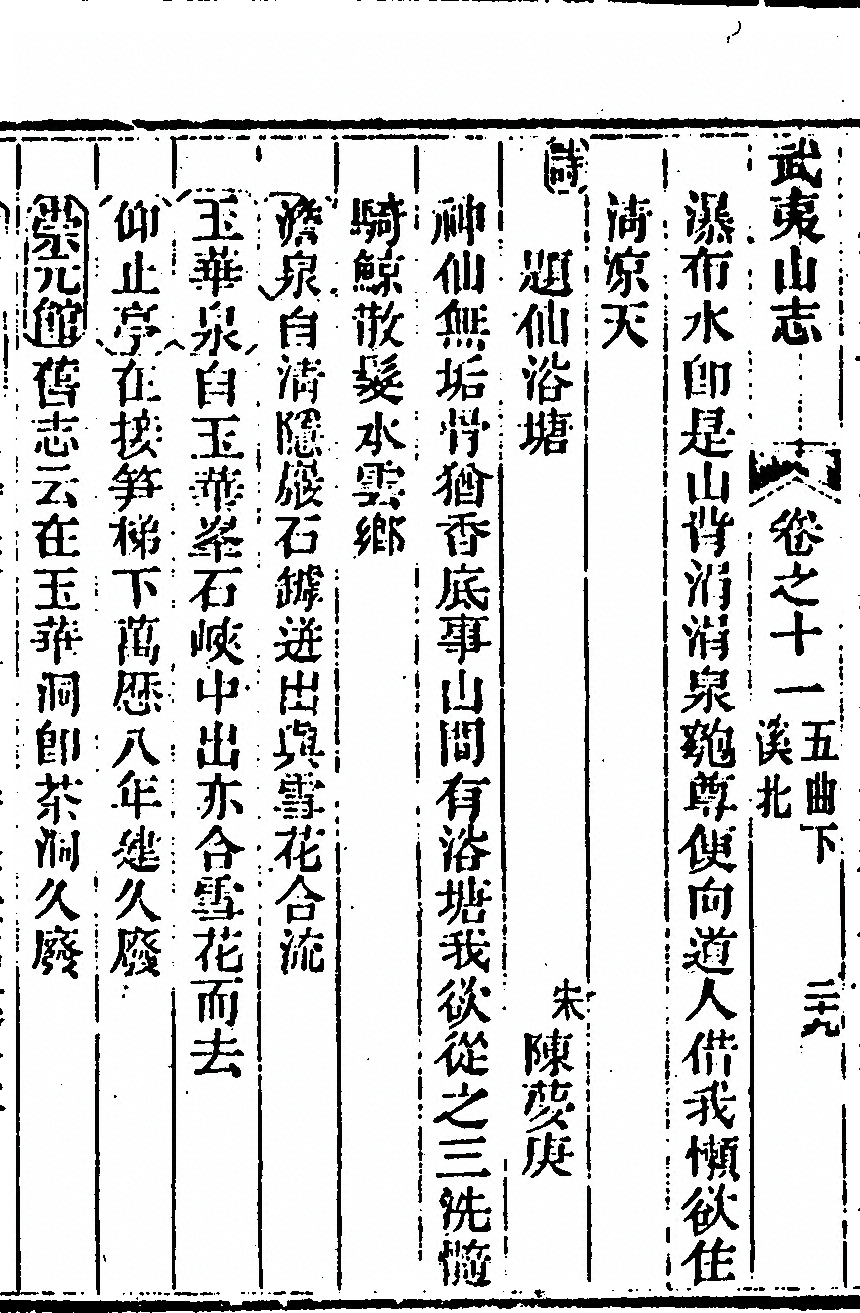 武夷山志 卷之十一 五曲下 溪北 二十九
瀑布水卽是山背涓涓泉匏尊便向道人借我懶欲住
淸凉天
詩 題仙浴塘 宋 陳夢庚
神仙無垢骨猶香底事山間有浴塘我欲從之三洗髓
騎鯨散髮水雲鄉
澹泉自淸隱巖石罅迸出與雪花合流
玉華泉自玉華峯石峽中出亦合雪花而去
仰止亭在接笋梯下萬歷八年建久廢
崇元館舊志云在玉華洞卽茶洞久廢